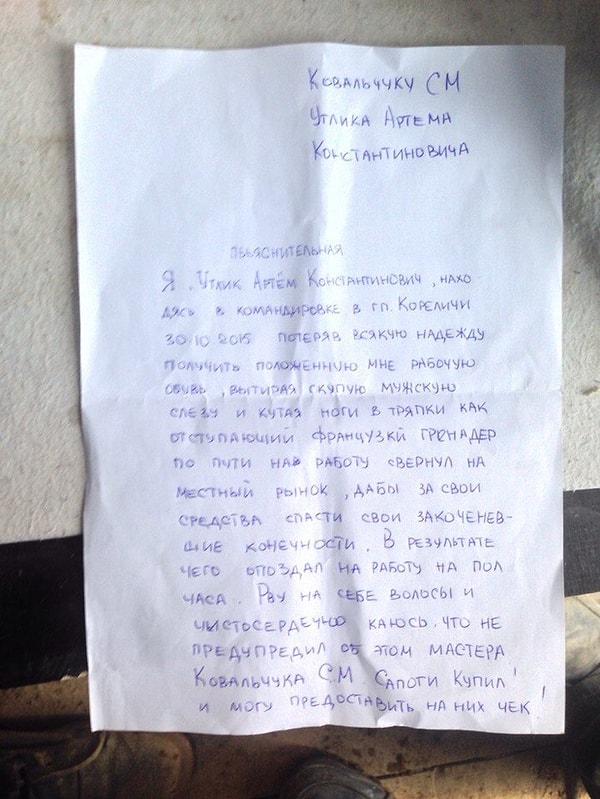 Ковальчуку СМ
Утлика Артема
Константиновича
Обьяснительная
Я, Утлик Артём Константинович, нахо
дясь в командировке в гп. Кореличи
30.10.2015 потеряв всякую надежду
получить положенную мне рабочую
обувь, вытирая скупую мужскую
слезу и кутая ноги в тряпки как
отступающий французкй гренадер
по пути нав работу свернул на
местный рынок, дабы за свои
средства спасти свои закоченев-
шие конечности. В результате
чего опоздал на работу на пол
часа. Рву на себе волосы и
чистосердечно каюсь, что не
предупредил об этом мастера
Ковальчука С.М. Сапоги купил!
и могу предоставить на них чек!